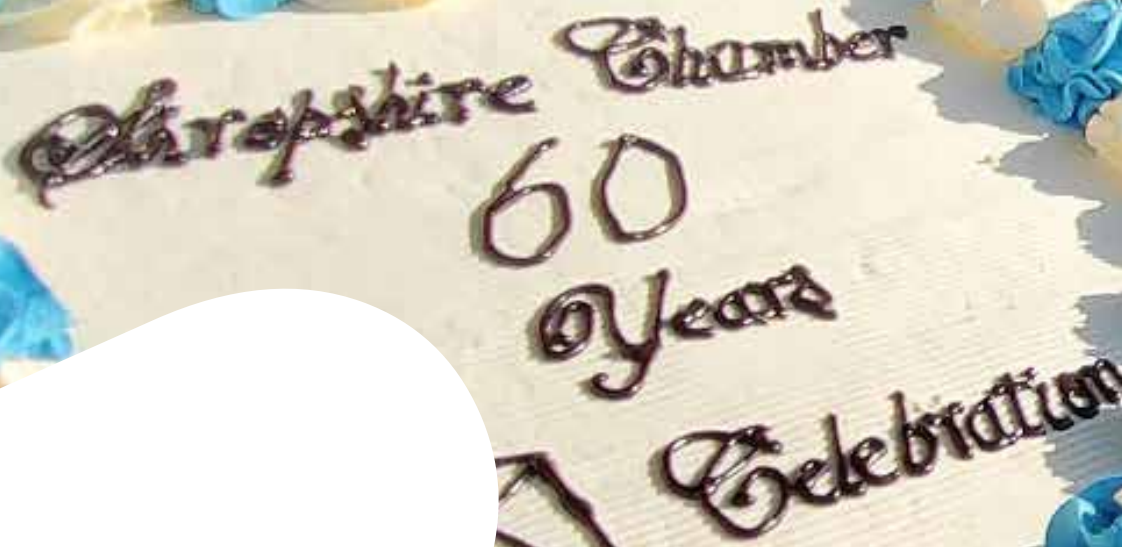 Shropshire Chamber
60
Years
Celebration